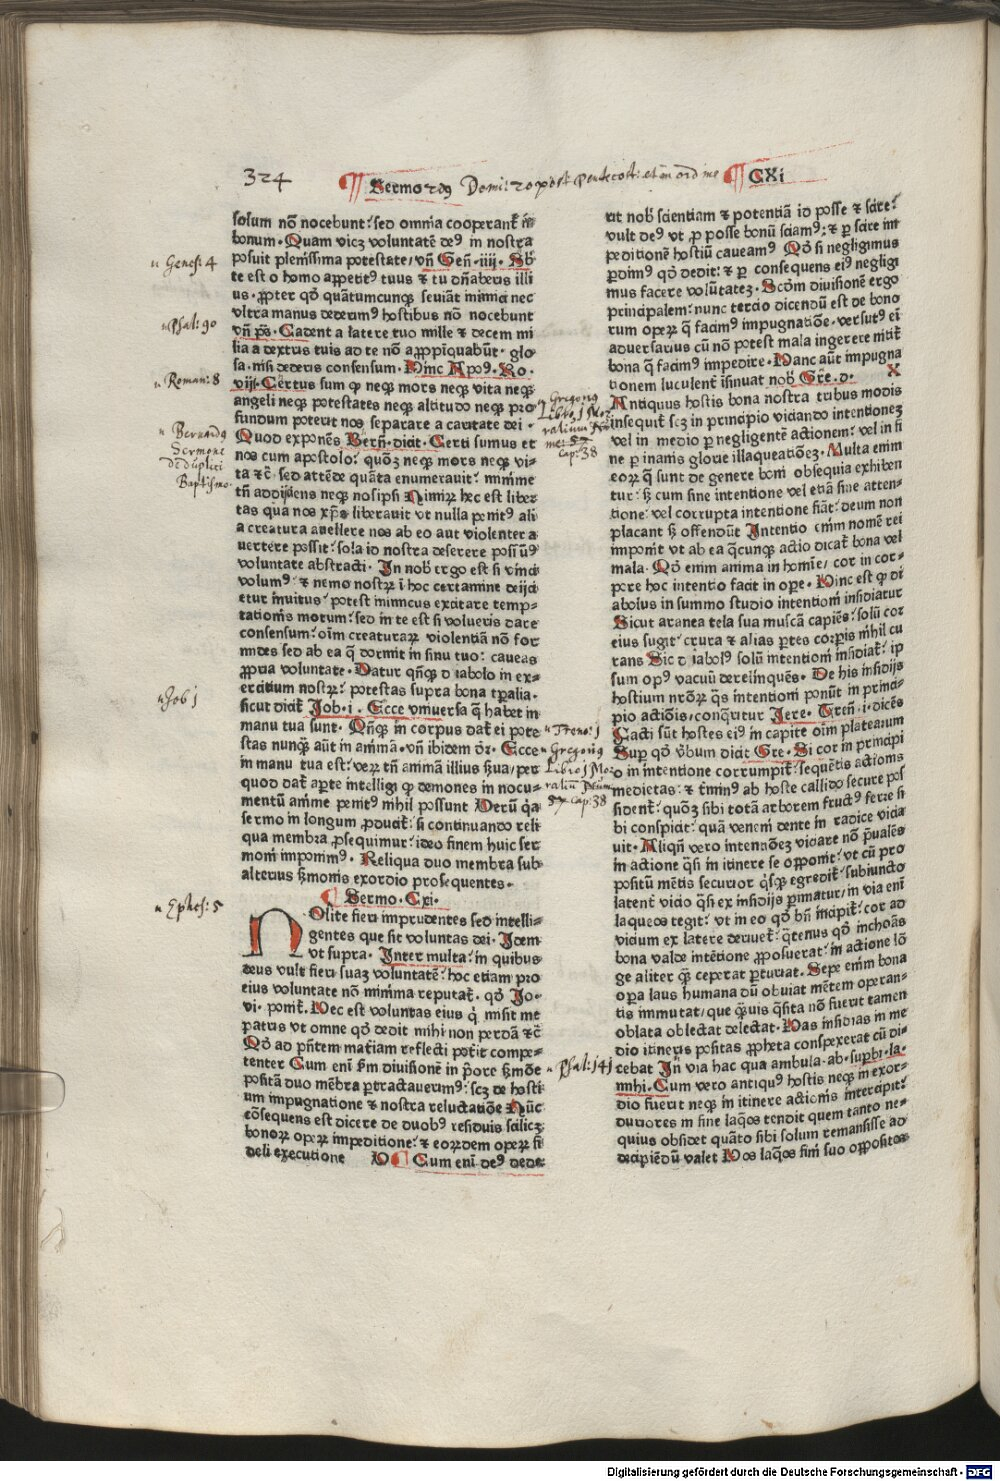 324
Sermo 2dus Domi: 20 post Pentecost: et in ord ine
CXi
solum nō nocebunt: sed omnia cooperant̄ in
bonum. Quam vicꝫ voluntatē deꝰ in nostra
posuit plenissima potestate, vn̄ Gen̄. iiij. Sb̄
te est o homo appetitꝰ tuus ⁊ tu dn̄aberis illi
us. propter qd̄ quātumcunqꝫ seuiāt inimici nec
vltra manus dederimꝰ hostibus nō nocebunt
vn̄ ps̄. Cadent a latere tuo mille ⁊ decem mi
lia a dextris tuis ad te nō appropīquabūt. glo
sa. nisi dederis consensum. Hinc Apoꝰ. Ro.
viij. Certus sum ꝙ neqꝫ mors neqꝫ vita neqꝫ
angeli neqꝫ potestates neqꝫ altitudo neqꝫ pro
fundum poterit nos separare a caritate dei.
Quod exponēs Bern̄. dicit. Certi sumus et
nos cum apostolo: quōꝫ neqꝫ mors neqꝫ vi-
ta ⁊c̄. sed attēde quāta enumerauit: minime
tn̄ addijciens neqꝫ nosipsi Nimiꝝ hec est liber
tas qua nos xp̄s liberauit vt nulla penitꝰ ali
a creatura auellere nos ab eo aut violenter a
uertere possit: sola id nostra deserere poss̄ ꝓpa
voluntate abstracti. In nob̄ ergo est si vinci
volumꝰ ⁊ nemo nostꝝ ī hoc certamine deijci
etur inuitus: potest inimicus excitare temp-
tationis motum: sed in te est si volueris dare
consensum: oīm creaturaꝝ violentiā nō for
mides sed ab ea q̄ dormit in sinu tuo: caueas
propria voluntate. Datur qn̄qꝫ diabolo in ex-
ercitium nostꝝ: potestas supra bona tp̄alia.
sicut dicit̄ Job. i. Ecce vniuersa q̄ habet in
manu tua sunt. Qn̄qꝫ in corpus dat̄ ei pote
stas nunqꝫ aūt in animā. vn̄ ibidem dr̄. Ecce
in manu tua est: veꝝ tn̄ animā illius ẜua, per
quod dat̄ aperte intelligi ꝙ demones in nocu-
mentū anime penitꝰ nihil possunt Verū qa
sermo in longum producit̄: si continuando reli
qua membra prosequimur: ideo finem huic ser
moni imponimꝰ. Reliqua duo membra sub
alterius ẜmonis exordio prosequentes.
Sermo. Cxi.
NOlite fieri imprudentes sed intelli-
gentes que sit voluntas dei. Idem
vt supra. Inter multa: in quibus
deus vult fieri suaꝫ voluntatē: hoc etiam pro
eius voluntate nō minima reputat̄. qd̄ Jo-
vi. ponit̄. Hec est voluntas eius q̇ misit me
patris vt omne qd̄ dedit mihi non perdā ⁊c̄
Qd̄ ad pn̄tem mat̄iam reflecti pot̄it compe-
tenter Cum enī ẜm diuisionē in p̄ore ẜmōe
positā duo mēbra pertractauerimꝰ: scꝫ de hosti
um impugnatione ⁊ nostra reluctatiōe Nūc
cōsequens est dicere de duobꝰ residuis scilicꝫ
bonoꝝ opeꝝ impeditione: ⁊ eoꝝdem opeꝝ fi
deli executione Cum enī deꝰ dede
rit nob̄ scientiam ⁊ potentiā id posse ⁊ scire:
vult deꝰ vt per posse bonū sciamꝰ: ⁊ per scire im
peditionē hostiū caueamꝰ Qd̄ si negligimus
perdimꝰ qd̄ dedit: ⁊ per consequens eiꝰ negligi
mus facere volūtateꝫ. Scd̄m diuisionē ergo
principalem: nunc tercio dicendū est de bono
rum opeꝝ q̄ facimꝰ impugnatiōe. versutꝰ eī
aduersarius cū nō potest mala ingerere nitit̄
bona q̄ facimꝰ impedire. Hanc aūt impugna
tionem luculent̄ īsinuat nob̄ Gre. d.
Antiquus hostis bona nostra tribus modis
insequit̄ scꝫ in principio viciando intentionez
vel in medio per negligentē actionem: vel in fi
ne per inanis glorie illaqueatiōeꝫ. Multa enim
eoꝝ q̄ sunt de genere boni obsequia exhiben
tur: sꝫ cum sine intentione vel etiā sine atten-
tione: vel corrupta intentione fiāt: deum non
placant sꝫ offendūt Intentio enim nomē rei
imponit vt ab ea q̄cunqꝫ actio dicat̄ bona vel
mala. Qd̄ enim anima in homīe, cor in cor-
pore hoc intentio facit in ope. Hinc est ꝙ di
abolus in summo studio intentioni insidiatur
Sicut aranea tela sua muscā capiēs: solū cor
eius sugit: crura ⁊ alias partes corpis nihil cu
rans Sic diabolꝰ solū intentioni insidiat̄: ip
sum opꝰ vacuū derelinquēs. De his insidijs
hostium nr̄oꝝ q̄s intentioni ponūt in princi-
pio actiōis, conqueritur Jere. Tren̄. i. dicēs
Facti sūt hostes eiꝰ in capite oīm platearum
Super qd̄ verbum dicit Gre. Si cor in principi
o in intentione corrumpit̄: sequētis actionis
medietas: ⁊ t̄minꝰ ab hoste callido secure pos
sident̄: quōꝫ sibi totā arborem fructꝰ ferre si
bi conspicit: quā veneni dente in radice vicia
uit. Aliqn̄ vero intentiōeꝫ viciare nō preualēs
in actione q̄si in itinere se opponit: vt cū pro
positū mētis securior q̇sqꝫ egredit̄: subiuncto
latent̄ vicio q̄si ex insidijs perimatur, in via enī
laqueos tegit: vt in eo qd̄ bn̄ incipit̄: cor ad
vicium ex latere deriuet̄: q̄tenus qd̄ inchoās
bona valde intētione proposuerat: in actione lō
ge aliter q̄ꝫ ceperat perturiat. Sepe enim bona
opa laus humana dū obuiat mētem operan-
tis immutat, que q̄ꝫuis q̄sita nō fuerit tamen
oblata oblectat delectat. Has insidias in me
dio itineris positas propheta conspexerat cū di-
cebat In via hac qua ambula. ab. supbi. la.
mihi. Cum vero antiquꝰ hostis neqꝫ in exor-
dio fuerit neqꝫ in itinere actionis intercipit:
duriores in fine laq̄os tendit quem tanto ne-
quius obsidet quāto sibi solum remansisse ad
decipiēdū valet Hos laq̄os fini suo oppositos
Genes: 4
Psal: 90
Roman: 8
Bernardꝰ
Sermone
de duplici
Baptismo.
Job 1
Ephes: 5
Gregoriꝰ
Libro 1 Mo-
ralium
Cap: 38
Treno: 1
Gregoriꝰ
Libro 1 Mo-
Cap: 38
Psal: 141
Digitalisierung gefördert durch die Deutsche Forschungsgemeinschaft - DFG